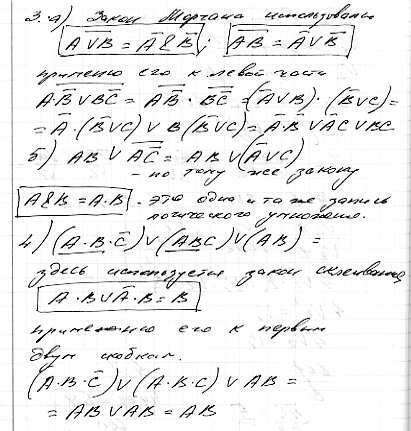 3. а) Закон Моргана использовали
A̅ ̅V̅ ̅B̅ = A̅ & B̅; A̅B̅ = A̅ V B̅
применю его к левой части
A·B̅ V BC̅ = AB̅ · BC̅ = (A̅ V B) · (B̅ V C) =
= A̅ · (B̅ V C) V B (B̅ V C) = A̅·B̅ V A̅C V BC
б) AB V AC̅ = AB V (A̅ V C)
- по тому же закону
A & B = A·B - это одна и та же запись
логического умножения.
4) (A·B·C̅) V (ABC) V (AB) =
здесь используется закон склеивания
A·B V A̅·B = B
применяю его к первым
двум скобкам.
(A·B·C̅) V (A·B·C) V AB =
= AB V AB = AB